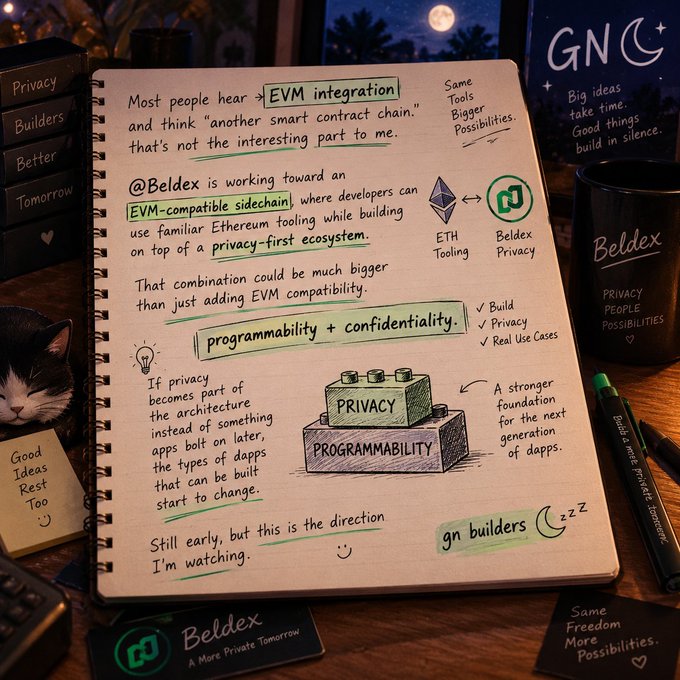 Privacy
Builders
Better
Tomorrow
GN
Big ideas
take time.
Good things
build in silence.
Most people hear → EVM integration
and think “another smart contract chain.”
that's not the interesting part to me.
Same
Tools
Bigger
Possibilities.
@Beldex is working toward an
EVM-compatible sidechain, where developers can
use familiar Ethereum tooling while building
on top of a privacy-first ecosystem.
ETH
Tooling
Beldex
Privacy
That combination could be much bigger
than just adding EVM compatibility.
programmability + confidentiality.
✓ Build
✓ Privacy
✓ Real Use Cases
If privacy
becomes part of
the architecture
instead of something
apps bolt on later,
the types of dapps
that can be built
start to change.
PRIVACY
PROGRAMMABILITY
A stronger
foundation
for the next
generation
of dapps.
Still early, but this is the direction
I'm watching.
gn builders
zzz
Beldex
PRIVACY
PEOPLE
POSSIBILITIES
Good
Ideas
Rest
Too
Build a more private tomorrow.
Beldex
A More Private Tomorrow
Same
Freedom
More
Possibilities.